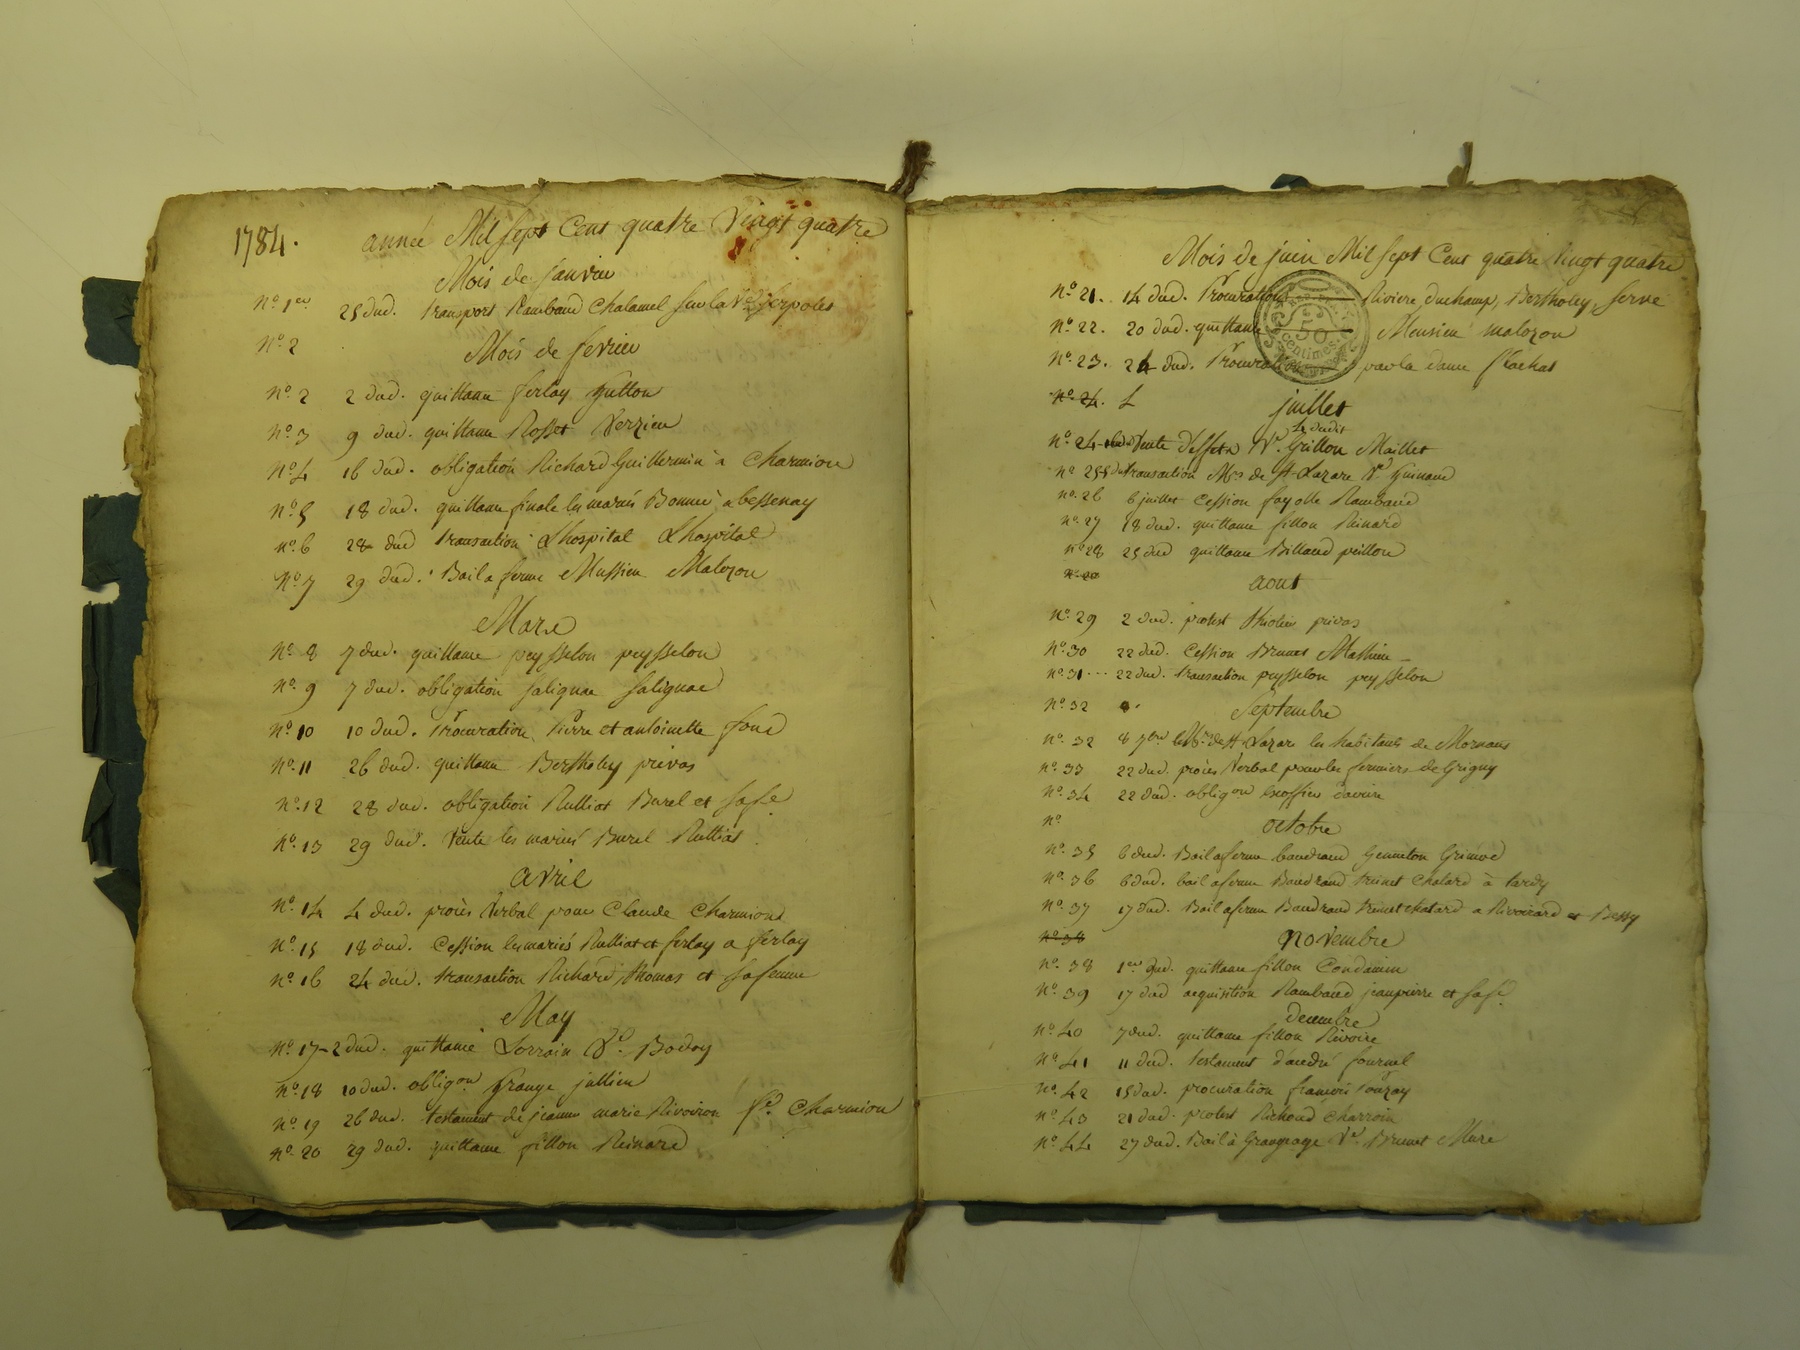 1784. année Mil sept Cent quatre Vingt quatre
Mois de janvier
n.º 1er 25 dud. transport Rambaud Chalamel sur la Ve Serpolet
nº 2
Mois de fevrier
nº 2 2 dud. quittance ferlay guitton
nº 3 9 dud. quittance Rosset Verzieu
nº 4 16 dud. obligation Richard Guillermin à Charmion
nº 5 18 dud. quittance finale les mariés Bonnier à bessenay
nº 6 28 dud transaction Lhospital Lhospital
nº 7 29 dud. Bail a ferme Mussieu Malozon
Mars
nº 8 7 dud. quittance peysselon peysselon
nº 9 7 dud. obligation salignac salignac
nº 10 10 dud. Procuration Pierre et antoinette fond
nº 11 26 dud. quittance Bertholey privas
nº 12 28 dud. obligation Rulliat Burel et sa fe
nº 13 29 dud. Vente les mariés Burel Rulliat
avril
nº 14 4 dud. procès Verbal pour Claude Charmiond
nº 15 18 dud. Cession les mariés Rulliat et ferlay a ferlay
nº 16 24 dud. transaction Richard thomas et sa femme
May
nº 17 - 2 dud. quittance Lorrain Ve Bodoy
nº 18 10 dud. obligon Grange jullien
nº 19 26 dud. testament de jeanne marie Rivoiron fe Charmion
nº 20 29 dud. quittance fillon Reinard
Mois de juin Mil sept Cent quatre Vingt quatre
nº 21. 14 dud. Procuration Riviere duchamp, Bertholey, serve
nº 22. 20 dud. quittance Meusieu malozon
nº 23. 24 dud. Procuration par la dame flachat
50
centimes
nº 24. 4
juillet
4 dudit
nº 24 Vente Ve Grillon Maillet
nº 25 5 dud transaction Mrs de St Lazare Ve Guinand
nº 26 6 juillet Cession fayolle Rambaud
nº 27 18 dud. quittance fillon Reinard
nº 28 25 dud quittance Billaud peillon
aout
nº 29 2 dud. protest privas
nº 30 22 dud. Cession Brunet Mathieu
nº 31 ... 22 dud. transaction peysselon peysselon
nº 32
Septembre
nº 32 8 7bre Mrs de St Lazare les habitans de Mornans
nº 33 22 dud. procès Verbal pour les fermiers de Grigny
nº 34 22 dud. obligon
nº
octobre
nº 35 6 dud. Bail a ferme baudrand Genneton Grimod
nº 36 6 dud. bail a ferme Baudrand trunet chatard à tardy
nº 37 17 dud. Bail a ferme Baudrand trunet chatard a Rivoirard et Bessy
nº 38
Novembre
nº 38 1er dud. quittance fillon Condamin
nº 39 17 dud acquisition Rambaud jeanpierre et sa fe
decembre
nº 40 7 dud. quittance fillon Rivoire
nº 41 11 dud. testament d'andré fournel
nº 42 15 dud. procuration françois
nº 43 21 dud. protest Richoud Charroin
nº 44 27 dud. Bail à Grangeage Ve Brunet Mure